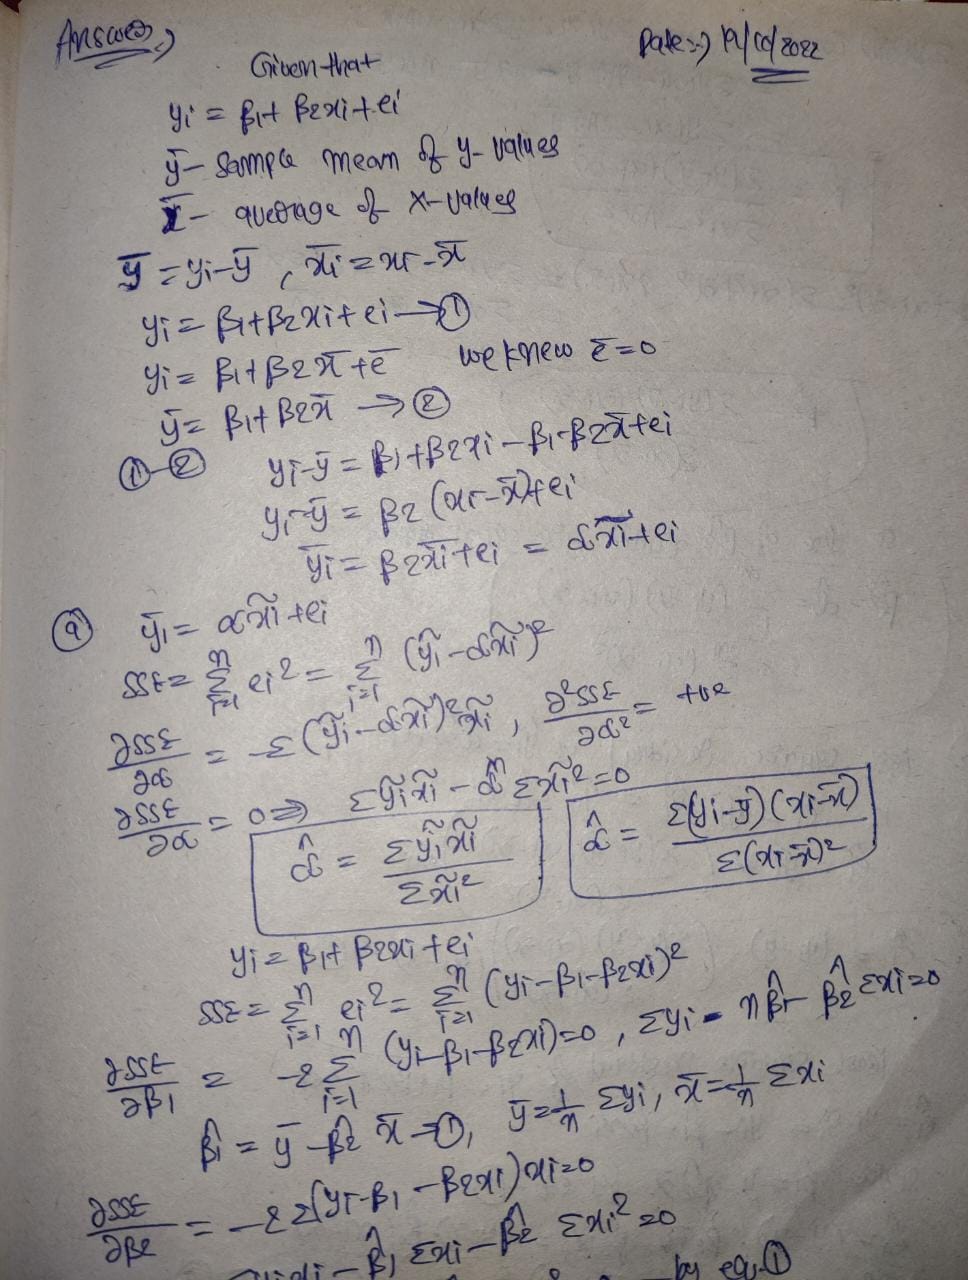 Answer,
Date:-) 19/10/2022
Given that
yi = β1+ β2xi+ei
ȳ - Sample mean of y-values
x̄ - average of x-values
ȳ = yi-ȳ , x̄i = xi-x̄
yi = β1+β2xi+ei → ①
yi = β1+β2x̄+ē we knew ē=0
ȳ = β1+β2x̄ → ②
①-② yi-ȳ = β1+β2xi-β1-β2x̄+ei
yi-ȳ = β2(xi-x̄)+ei
ȳi = β2x̄i+ei = αx̃i+ei
ⓐ ỹi = αx̃i+ei
SSE = Σ(i=1 to n) ei² = Σ(i=1 to n) (ỹi-αx̃i)²
∂SSE/∂α = -Σ(ỹi-αx̃i)2x̃i , ∂²SSE/∂α² = +ve
∂SSE/∂α = 0 ⇒ Σỹix̃i - α̂ Σx̃i² = 0
α̂ = Σỹix̃i / Σx̃i² α̂ = Σ(yi-ȳ)(xi-x̄) / Σ(xi-x̄)²
yi = β1+β2xi+ei
SSE = Σ(i=1 to n) ei² = Σ(i=1 to n) (yi-β1-β2xi)²
∂SSE/∂β1 = -2Σ(i=1 to n) (yi-β1-β2xi)=0 , Σyi - nβ̂1- β̂2Σxi=0
β̂1 = ȳ-β̂2 x̄ → ①, ȳ=1/n Σyi, x̄=1/n Σxi
∂SSE/∂β2 = -2Σ(yi-β1-β2xi)xi=0
-β̂1 Σxi-β̂2 Σxi²=0
by equ. ①